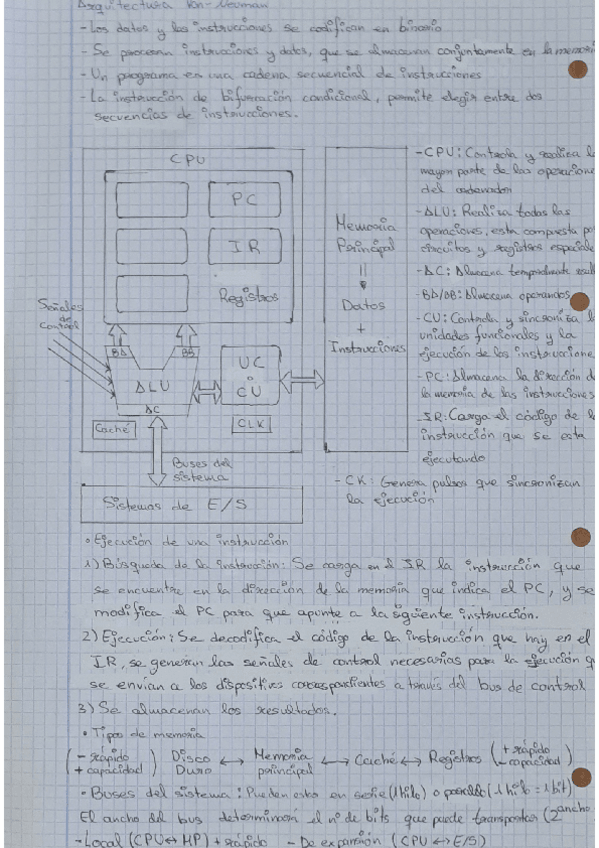 Arquitectura Von-Neuman
- Los datos y las instrucciones se codifican en binario
- Se procesan instrucciones y datos, que se almacenan conjuntamente en la memoria
- Un programa en una cadena secuencial de instrucciones
- La instrucción de bifurcación condicional, permite elegir entre dos
secuencias de instrucciones.
CPU
PC
IR
Registros
Señales
de
Control
BA
BB
ALU
AC
UC
o
CU
Caché
CLK
Buses del
sistema
Sistemas de E/S
Memoria
Principal
Datos
+
Instrucciones
- CPU: Controla y realiza la
mayor parte de las operaciones
del ordenador
- ALU: Realiza todas las
operaciones, esta compuesta por
circuitos y registros especiale
- AC: Almacena temporalmente
- BA/BB: Almacena operandos
- CU: Controla y sincroniza l
unidades funcionales y la
ejecución de las instrucciones
- PC: Almacena la dirección de
la memoria de las instrucciones
IR: Carga el código de la
instrucción que se esta
ejecutando
- CK: Genera pulsos que sincronizan
la ejecución
• Ejecución de una instrucción
1) Búsqueda de la instrucción: Se carga en el IR la instrucción que
se encuentre en la dirección de la memoria que indica el PC, y se
modifica el PC para que apunte a la siguiente instrucción.
2) Ejecución: Se decodifica el código de la instrucción que hay en el
IR, se generan las señales de control necesarias para la ejecución q
se envían a los dispositivos correspondientes a través del bus de control
3) Se almacenan los resultados.
• Tipos de memoria
(- rápido + capacidad) Disco Duro ↔ Memoria principal ↔ Caché ↔ Registros (+ rápido - capacidad)
- Buses del sistema: Pueden estar en serie (1 hilo) o paralelo (1 hilo = 1 bit)
El ancho del bus determinan el nº de bits que puede transportar (2^ancho
- Local (CPU ↔ MP) + rápido - De expansión (CPU ↔ E/S)